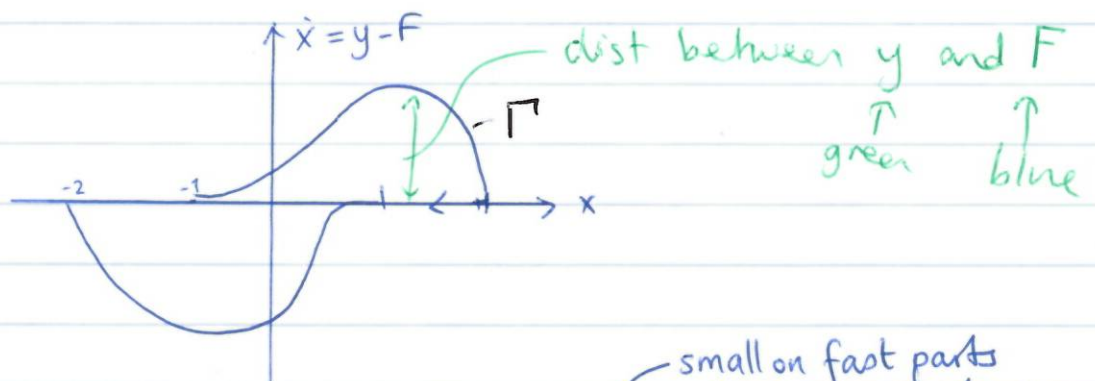 ẋ = y - F
dist between y and F
Γ
green
blue
-2
-1
x
small on fast parts